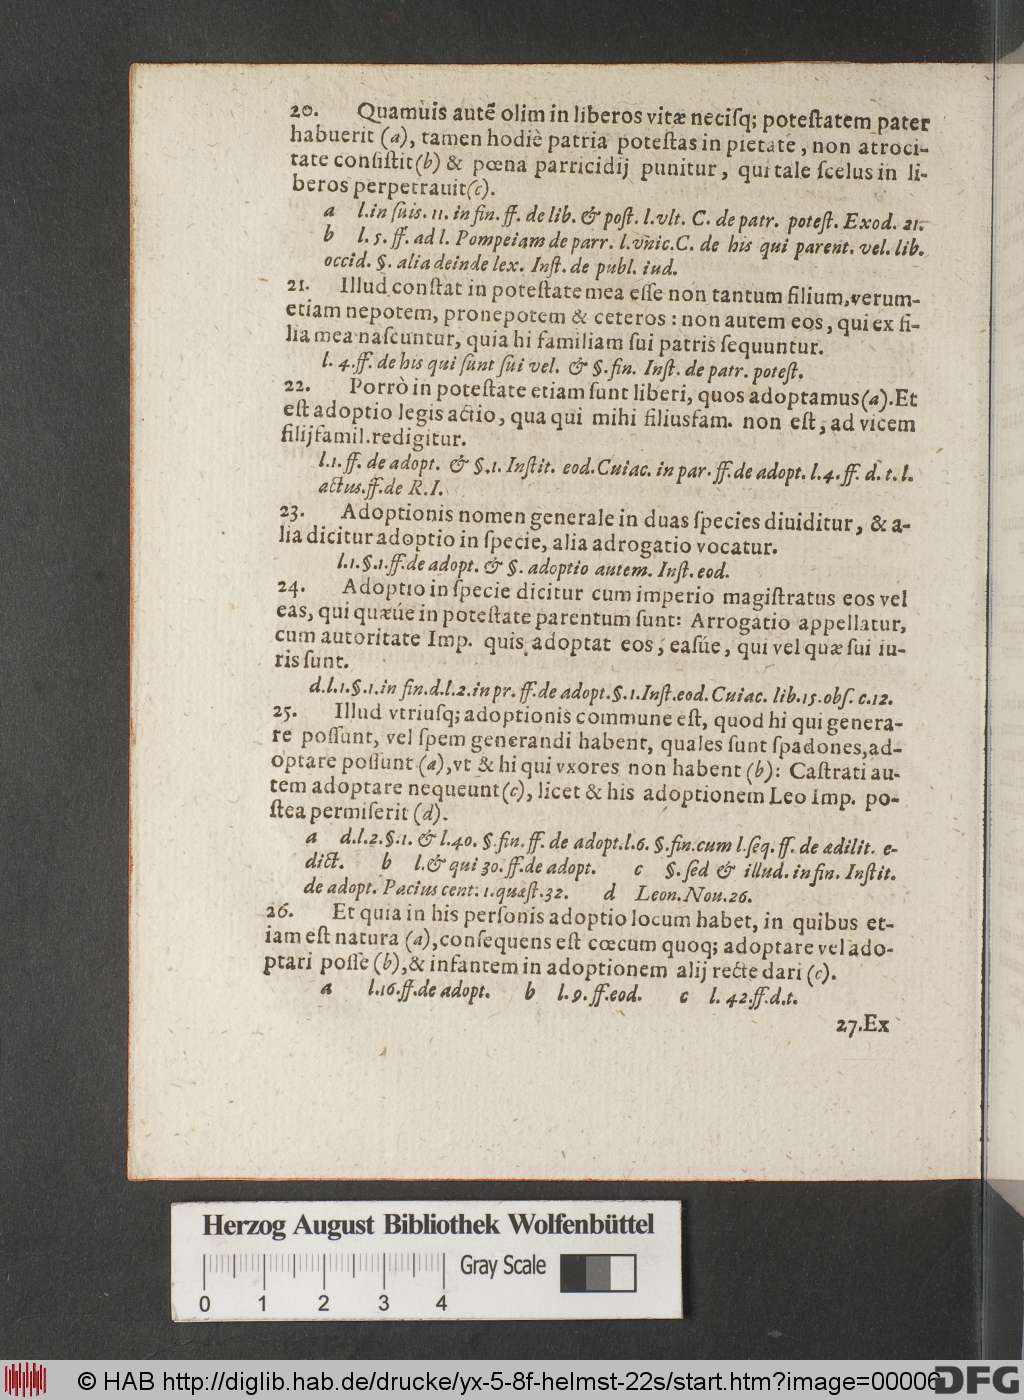 20. Quamuis autẽ olim in liberos vitæ neciſq; poteſtatem pater
habuerit (a), tamen hodiè patria poteſtas in pietate, non atroci-
tate conſiſtit (b) & pœna parricidij punitur, qui tale ſcelus in li-
beros perpetrauit (c).
a l. in ſuis. 11. in fin. ff. de lib. & poſt. l. vlt. C. de patr. poteſt. Exod. 21.
b l. 5. ff. ad l. Pompeiam de parr. l. vnic. C. de his qui parent. vel. lib.
occid. §. alia deinde lex. Inſt. de publ. iud.
21. Illud conſtat in poteſtate mea eſſe non tantum filium, verum-
etiam nepotem, pronepotem & ceteros: non autem eos, qui ex fi-
lia mea naſcuntur, quia hi familiam ſui patris ſequuntur.
l. 4. ff. de his qui ſunt ſui vel. & §. fin. Inſt. de patr. poteſt.
22. Porrò in poteſtate etiam ſunt liberi, quos adoptamus (a). Et
eſt adoptio legis actio, qua qui mihi filiusfam. non eſt, ad vicem
filijfamil. redigitur.
l. 1. ff. de adopt. & §. 1. Inſtit. eod. Cuiac. in par. ff. de adopt. l. 4. ff. d. t. l.
actus. ff. de R. I.
23. Adoptionis nomen generale in duas ſpecies diuiditur, & a-
lia dicitur adoptio in ſpecie, alia adrogatio vocatur.
l. 1. §. 1. ff. de adopt. & §. adoptio autem. Inſt. eod.
24. Adoptio in ſpecie dicitur cum imperio magiſtratus eos vel
eas, qui quæúe in poteſtate parentum ſunt: Arrogatio appellatur,
cum autoritate Imp. quis adoptat eos, eaſúe, qui vel quæ ſui iu-
ris ſunt.
d. l. 1. §. 1. in fin. d. l. 2. in pr. ff. de adopt. §. 1. Inſt. eod. Cuiac. lib. 15. obſ. c. 12.
25. Illud vtriuſq; adoptionis commune eſt, quod hi qui genera-
re poſſunt, vel ſpem generandi habent, quales ſunt ſpadones, ad-
optare poſſunt (a), vt & hi qui vxores non habent (b): Caſtrati au-
tem adoptare nequeunt (c), licet & his adoptionem Leo Imp. po-
ſtea permiſerit (d).
a d. l. 2. §. 1. & l. 40. §. fin. ff. de adopt. l. 6. §. fin. cum l. ſeq. ff. de ædilit. e-
dict. b l. & qui 30. ff. de adopt. c §. ſed & illud. in fin. Inſtit.
de adopt. Pacius cent. 1. quæſt. 32. d Leon. Nou. 26.
26. Et quia in his perſonis adoptio locum habet, in quibus et-
iam eſt natura (a), conſequens eſt cœcum quoq; adoptare vel ado-
ptari poſſe (b), & infantem in adoptionem alij recte dari (c).
a l. 16. ff. de adopt. b l. 9. ff. eod. c l. 42. ff. d. t.
27. Ex
Herzog August Bibliothek Wolfenbüttel
Gray Scale
0 1 2 3 4
© HAB http://diglib.hab.de/drucke/yx-5-8f-helmst-22s/start.htm?image=00006
DFG